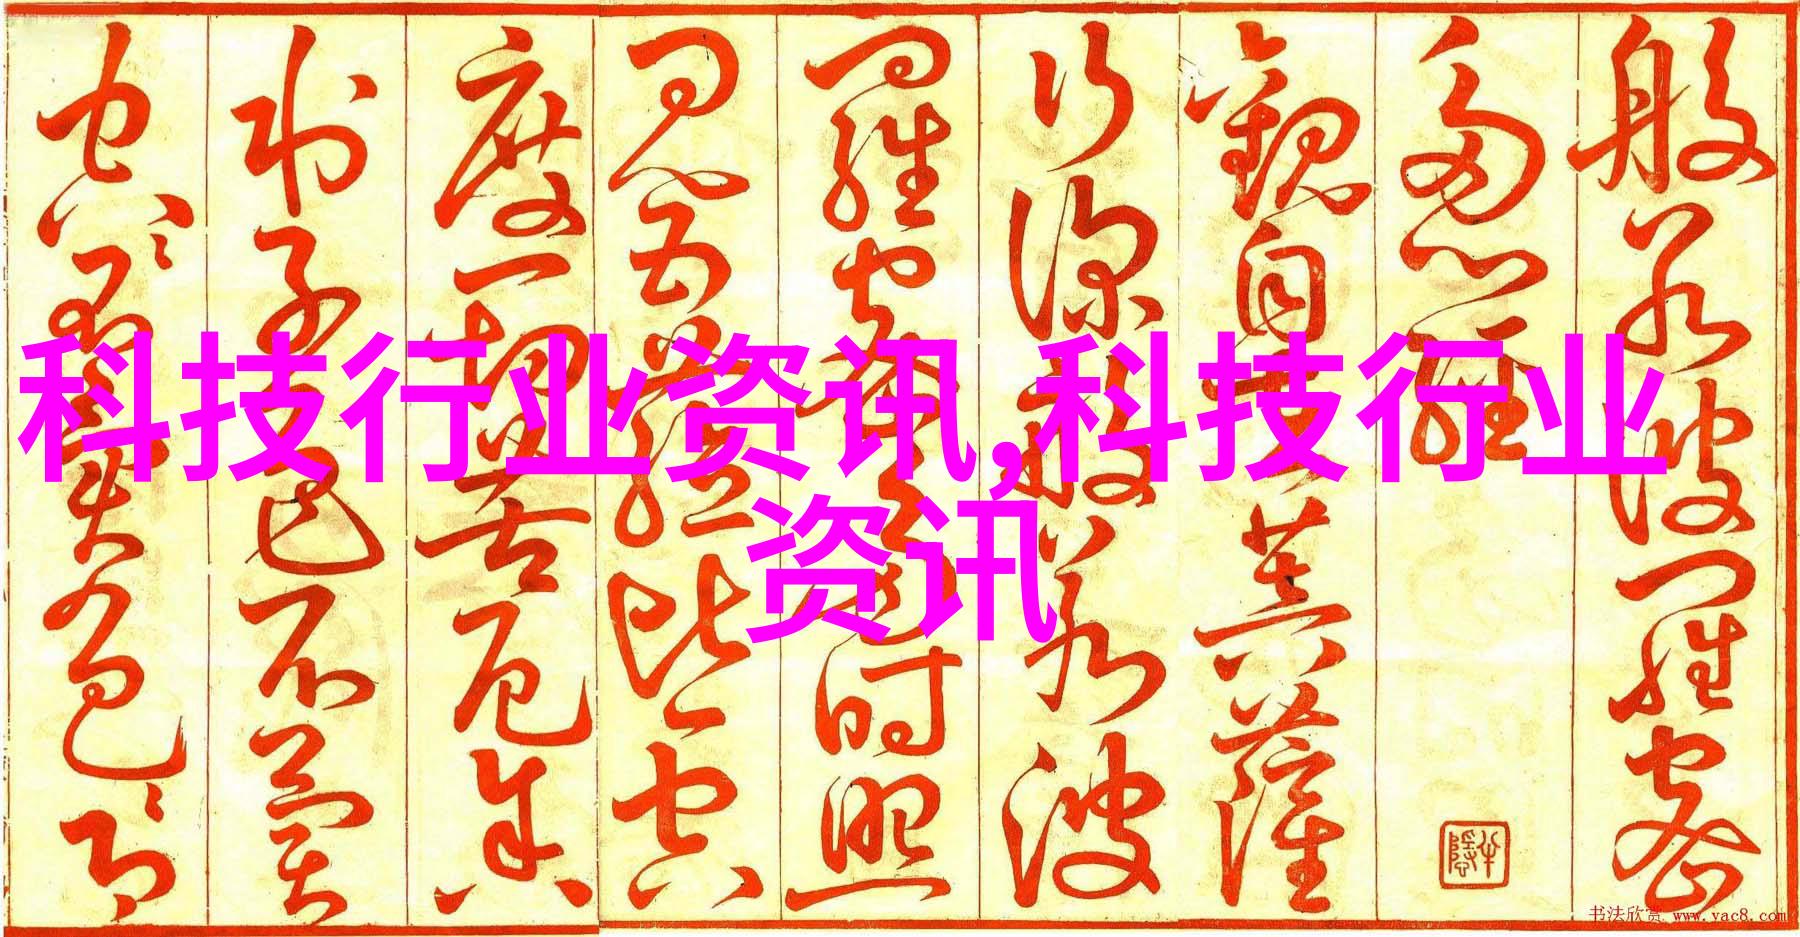 般若波羅蜜
多心經
觀自在菩薩
行深般若波
羅蜜多時照
見五蘊皆空
度一切苦厄舍
利子色不異
空〻不異色〻即
科技行业资讯,科技行业
资讯
书法欣赏 www.yac8.com